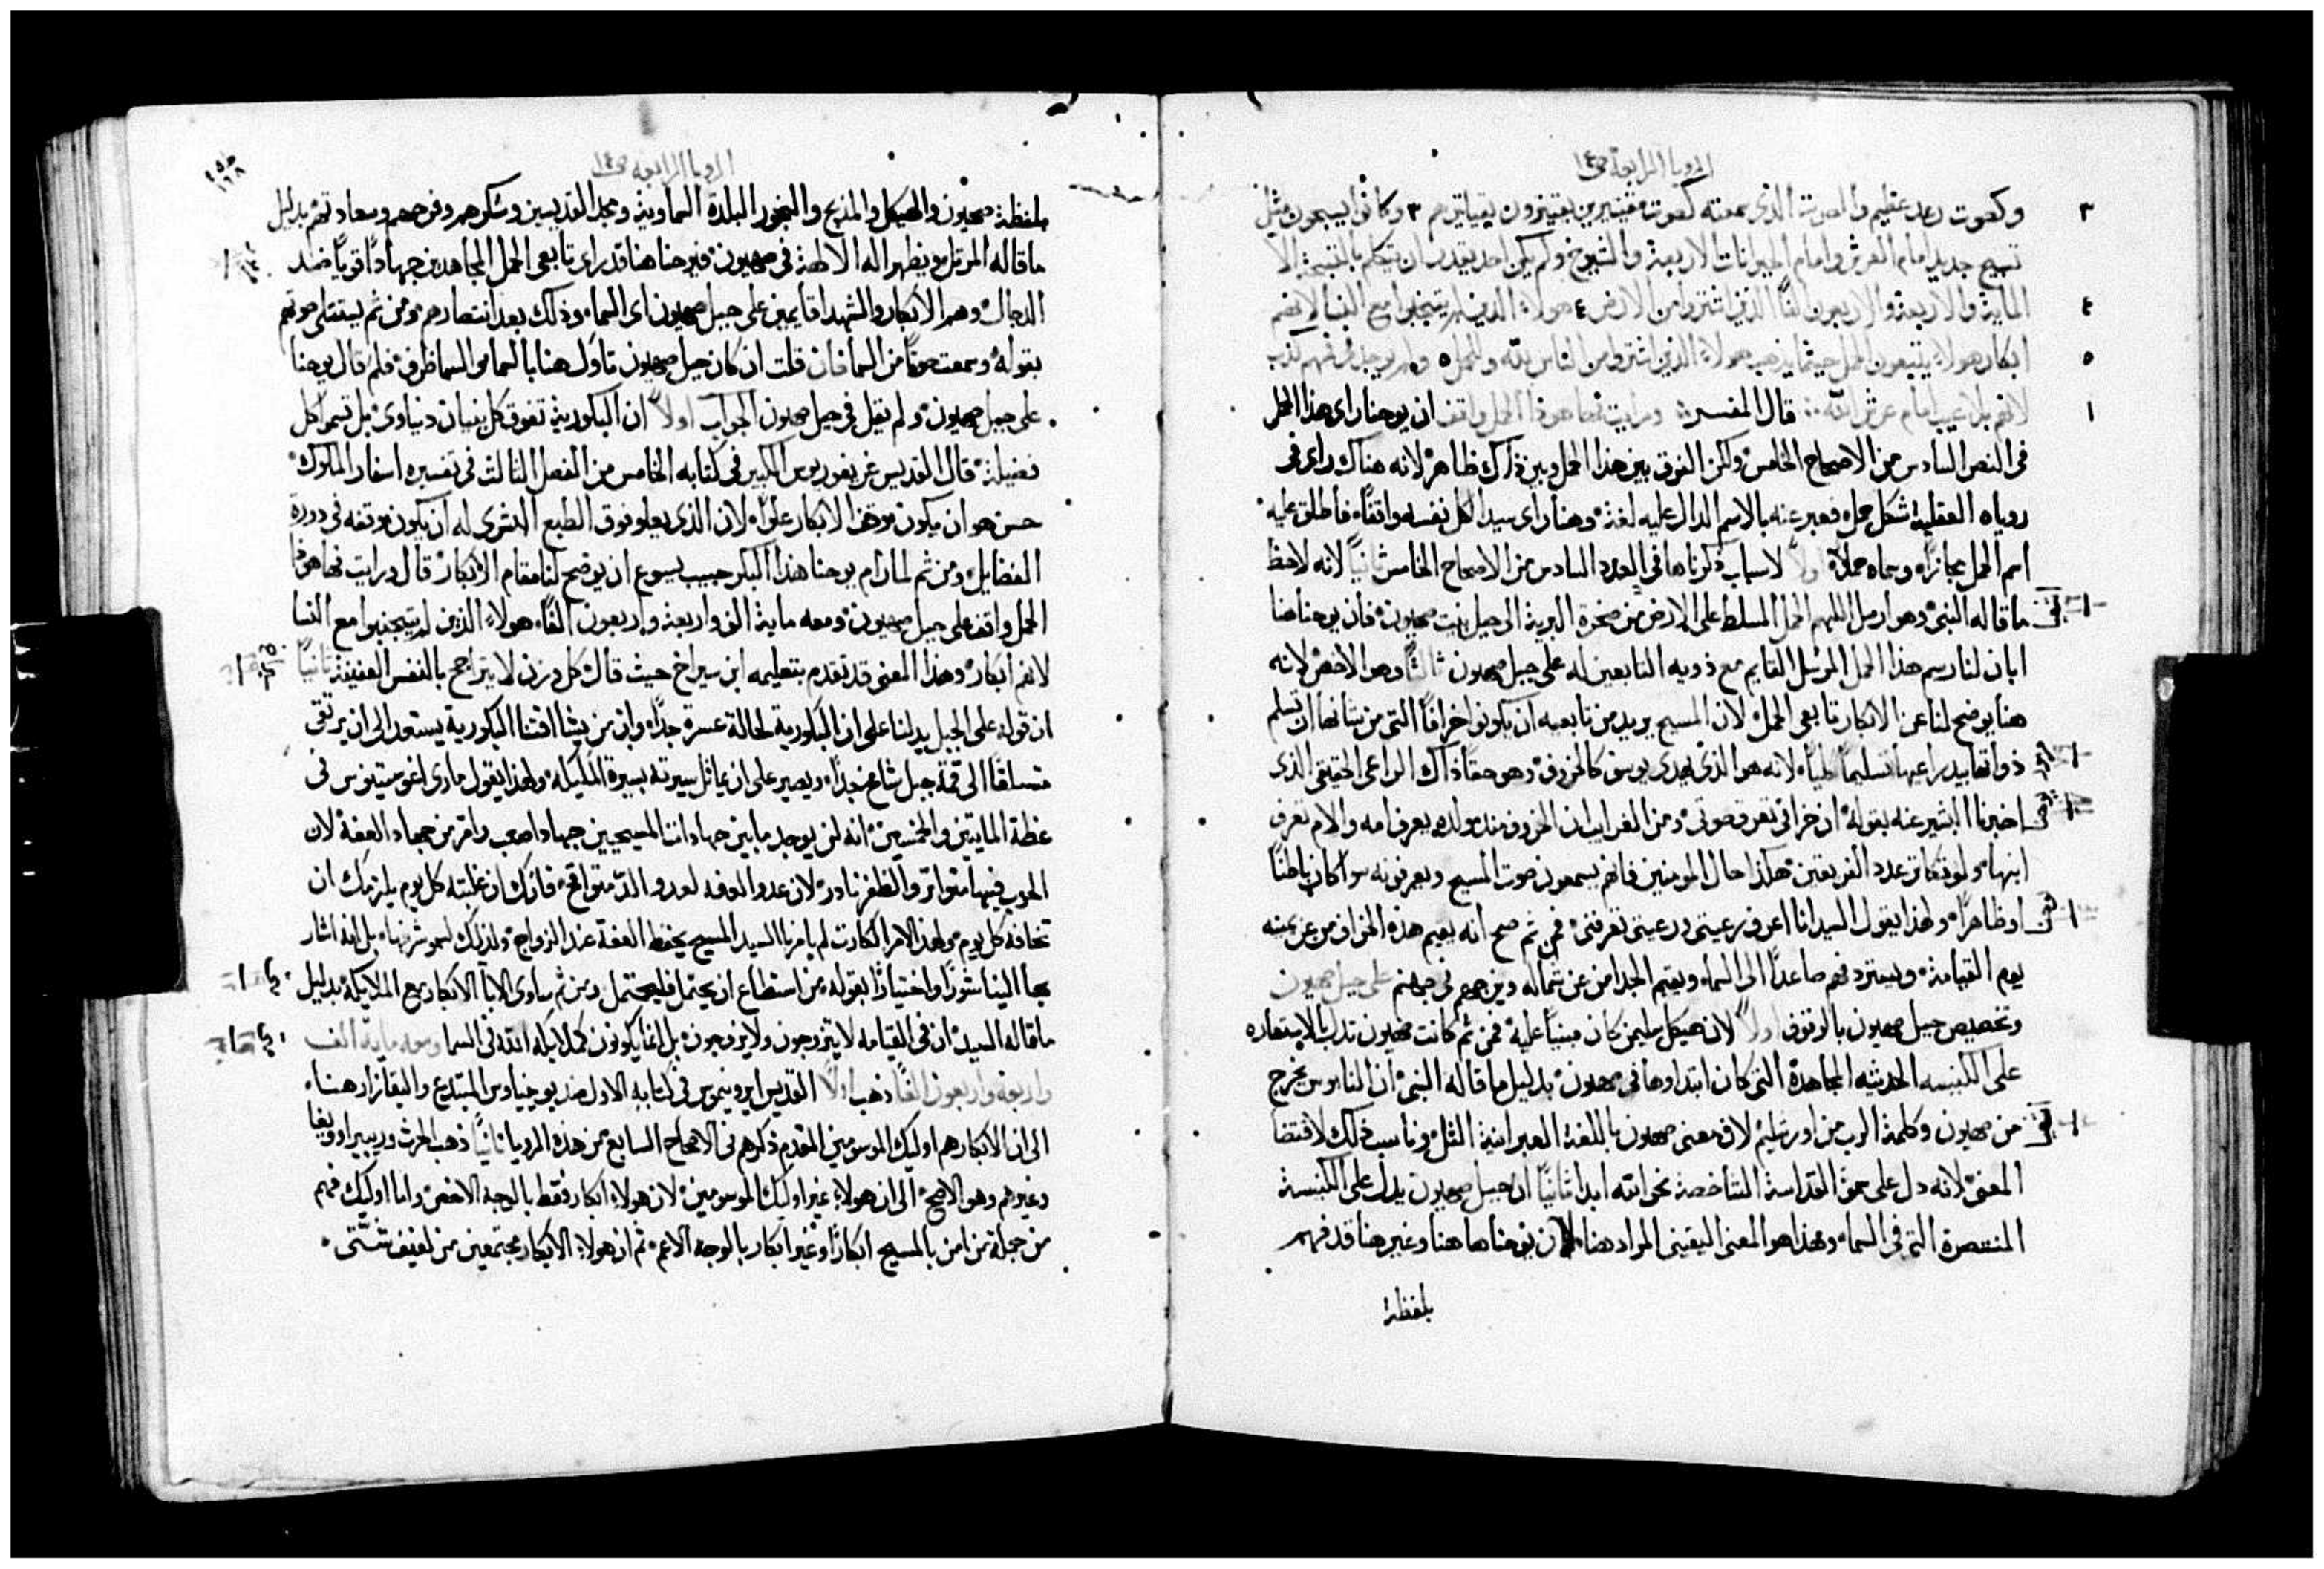 الرويا الرابعة ص١٤
وكصوت رعد عظيم والصوت الذي سمعته كصوت مقيثرين يقيثرون بقياثيرهم ٣ وكانوا يسبحون مثل
تسبيح جديد امام العرش وامام الحيوانات الاربعة والشيوخ ولم يكن احد يقدر ان يتكلم بالتسبحة الا
الماية والاربعة والاربعون الفًا الذين اشتروا من الارض ٤ هولاء الذين لم يتنجسوا مع النسا لانهم
ابكار هولاء يتبعون الحمل حيثما يذهب هولاء الذين اشتروا من الناس لله وللحمل ٥ ولم يوجد في فمهم كذب
لانهم بلا عيب امام عرش الله قال المفسر ورايت فها هوذا الحمل واقف ان يوحنا راى هذا الحمل
في النص السادس من الاصحاح الخامس ولكن الفرق بين هذا الحمل وبين ذاك ظاهر لانه هناك راى في
روياه العقلية شكل حمل فعبر عنه بالاسم الدال عليه لغة وهنا راى سيد الكل نفسه واقفًا فاطلق عليه
اسم الحمل مجازًا وسماه حملاً اولاً لاسباب ذكرناها في العدد السادس من الاصحاح الخامس ثانيًا لانه لاحظ
ما قاله النبي وهو ارسل اللهم الحمل المسلط على الارض من صخرة البرية الى جبل بنت صهيون فان يوحنا هنا
ابان لنا رسم هذا الحمل المرسل القايم مع ذويه التابعين له على جبل صهيون ثالثًا وهو الاخص لانه
هنا يوضح لنا عن الابكار تابعي الحمل لان المسيح يريد من تابعيه ان يكونوا خرافًا التي من شانها ان تسلم
ذواتها بيد راعيها تسليمًا كليًا لانه هو الذي يهدي يوسف كالخروف وهو حقًا ذاك الراعي الحقيقي الذي
اخبرنا البشير عنه بقوله ان خرافي تعرف صوتي ومن الغرايب ان الخروف منذ مولده يعرف امه والام تعرف
ابنها ولو تكاثر عدد الفريقين هكذا حال المومنين فانهم يسمعون صوت المسيح ويعرفونه سوا كان باطنًا
او ظاهرًا ولهذا يقول السيد انا اعرف رعيتي ورعيتي تعرفني فمن ثم صح انه يقيم هذه الخراف من عن يمينه
يوم القيامة ويستردهم صاعدًا الى السماء ويقيم الجدا من عن شماله ويزجهم في جهنم على جبل صهيون
وتخصيص جبل صهيون بالوقوف اولاً لان هيكل سليمن كان مبنيًا عليه فمن ثم كانت صهيون تدل بالاستعاره
على الكنيسه الحديثه المجاهدة التي كان ابتداوها في صهيون بدليل ما قاله النبي ان الناموس يخرج
من صهيون وكلمة الرب من اورشليم لان معنى صهيون باللغة العبرانية التل وناسب ذلك لاقتضا
المعنى لانه دل على سمو القداسة الشاخصة نحو الله ابدا ثانيًا ان جبل صهيون يدل على الكنيسة
المنتصرة التي في السماء وهذا هو المعنى اليقيني المراد هنا لان يوحنا ها هنا وغير هنا قد فهم
بلفظة
الرويا الرابعه ص١٤
بلفظة صهيون والهيكل والمذبح والبخور البلدة السماوية ومجد القديسين وشكرهم وفرحهم وسعادتهم بدليل
ما قاله المرتل ويظهر اله الالهة في صهيون فيوحنا هنا قد راى تابعي الحمل المجاهدين جهادًا قويًا ضد
الدجال وهم الابكار والشهدا قايمين على جبل صهيون اي السماء وذلك بعد انتصارهم ومن ثم يستتلى صوتهم
بقوله وسمعت صوتًا من السما فان قلت ان كان جبل صهيون تاول هنا بالسما والسما ظرف فلم قال يوحنا
على جبل صهيون ولم يقل في جبل صهيون الجواب اولاً ان البكورية تفوق كل بنيان دنياوي بل تسمو كل
فضيلة قال القديس غريغوريوس الكبير في كتابه الخامس من الفصل الثالث في تفسيره اسفار الملوك
حسن هو ان يكون موقف الابكار علوًا لان الذي يعلو فوق الطبع البشري له ان يكون موقفه في ذروة
الفضايل ومن ثم لما رام يوحنا هذا البكر حبيب يسوع ان يوضح لنا مقام الابكار قال ورايت فها هوذا
الحمل واقف على جبل صهيون ومعه ماية الف واربعة واربعون الفًا هولاء الذين لم يتنجسوا مع النسا
لانهم ابكار وهذا المعنى قد تقدم بتعليمه ابن سيراخ حيث قال كل وزن لا يتراجح بالنفس العفيفة ثانيًا
ان قوله على الجبل يدلنا على ان البكورية لحالة عسرة جدًا وان من يشا اقتنا البكورية يستعد الى ان يرتقي
متسلقًا الى قمة جبل شامخ جدًا ويصير على ان يماثل سيرته بسيرة المليكه ولهذا يقول ماري اغوستينوس في
عظة المايتين والخمسين انه لن يوجد ما بين جهادات المسيحيين جهادا اصعب وامر من جهاد العفة لان
الحرب فيها متواتر والظفر نادر لان عدو العفه لعدو الدّ متواقح فانك ان غلبته كل يوم يلزمك ان
تخافه كل يوم ولهذا الامر الكارث لم يامرنا السيد المسيح بحفظ العفة عند الزواج وذلك لسمو شرفها بل انه اشار
بها الينا شورًا واختيارًا بقوله من استطاع ان يحتمل فليحتمل ومن ثم ساوى الابا الابكار مع الملايكة بدليل
ما قاله السيد ان في القيامه لا يتزوجون ولا يزوجون بل انما يكونون كملايكه الله في السما ومعه ماية الف
واربعة واربعون الفًا ذهب اولاً القديس ايرونيموس في كتابه الاول ضد يوبينيانوس المبتدع والبقازار هنا
الى ان الابكار هم اوليك الموسومين المقدم ذكرهم في الاصحاح السابع من هذه الرويا ثانيًا ذهب الحرث وريبيرا وويغا
وغيرهم وهو الاصح الى ان هولاء غير اوليك الموسومين لان هولاء ابكار فقط بالوجه الاخص واما اوليك فهم
من جملة من امن بالمسيح ابكارًا وغير ابكار بالوجه الاعم ثم ان هولاء الابكار مجتمعين من لفيف شتى